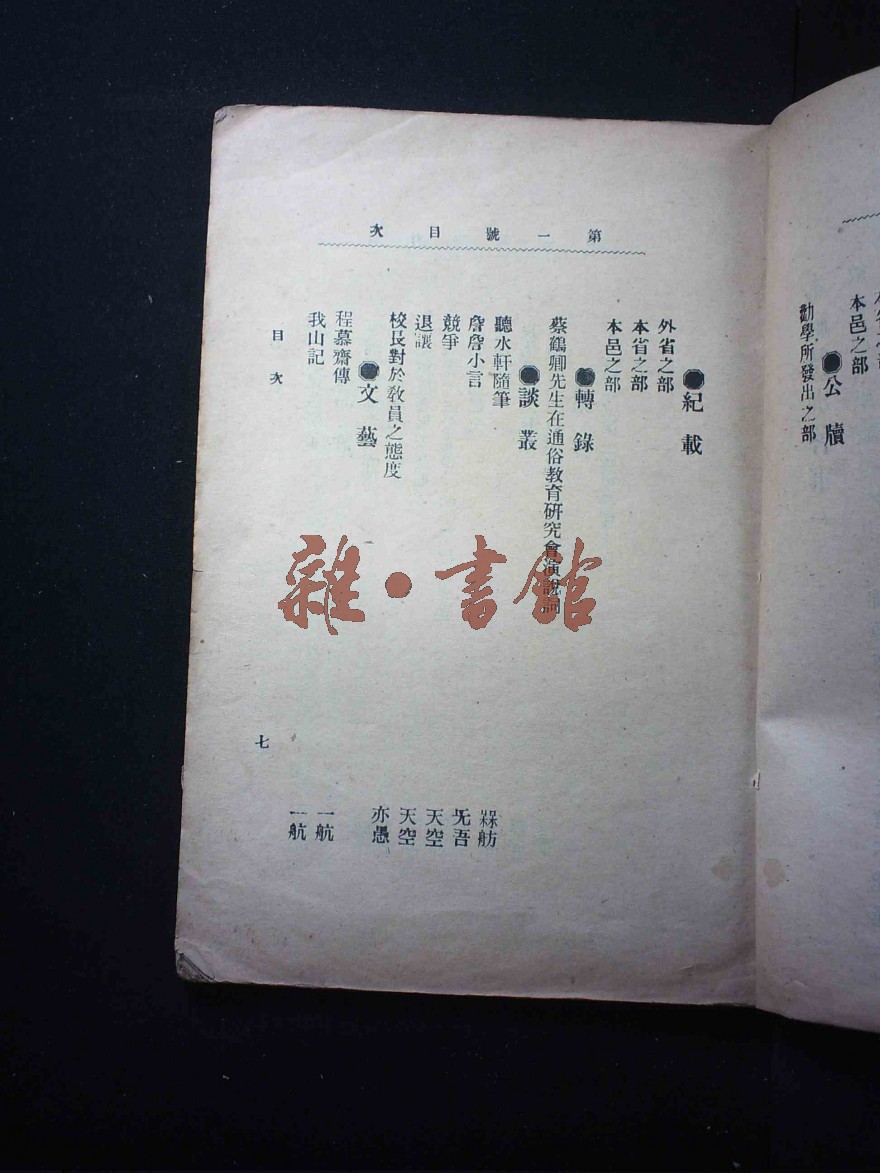 本邑之部
●公牘
勸學所發出之部
第一號目次
●紀載
外省之部
本省之部
本邑之部
●轉錄
蔡鶴卿先生在通俗教育研究會演說詞
●談叢
聽水軒隨筆 槑舫
詹詹小言 旡吾
競爭 天空
退讓 天空
校長對於教員之態度 亦愚
●文藝
程慕齋傳 一航
我山記 一航
目次
七
雜·書館